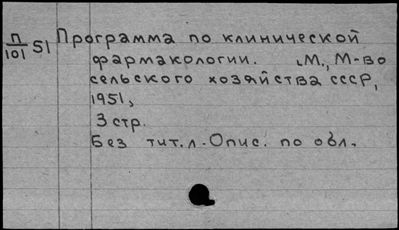 П/101 51 Программа по клинической
фармакологии. М., М-во
сельского хозяйства СССР,
1951,
3 стр.
Без тит.л. Опис. по обл.